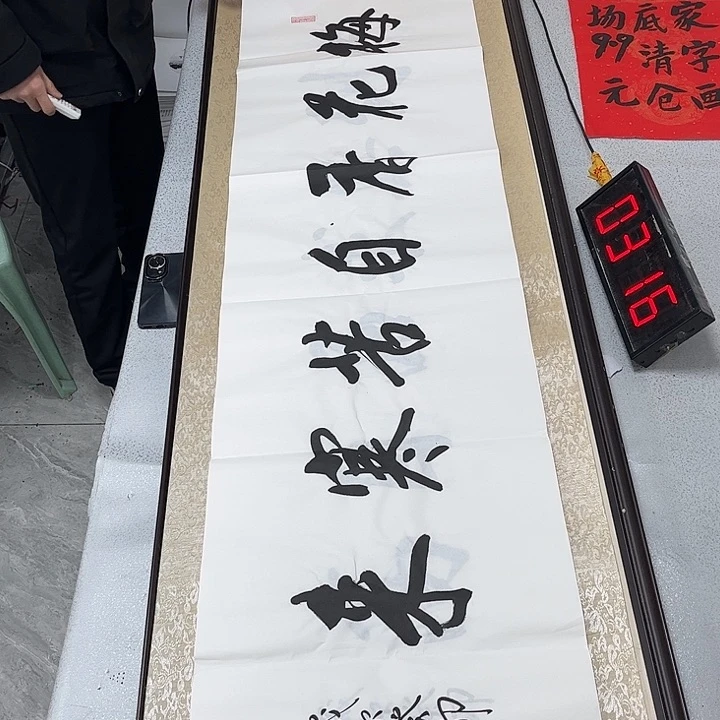 梅花香自苦寒来
家字画
底清仓
场9.9元
0316